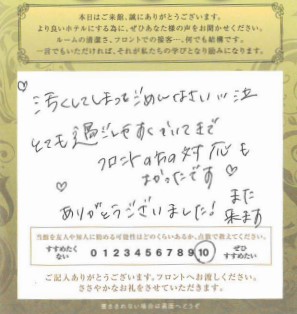 本日はご来館、誠にありがとうございます。
より良いホテルにする為に、ぜひあなた様の声をお聞かせください。
ルームの清潔さ、フロントでの接客…何でも結構です。
一言でもいただければ、それが私たちの学びとなり励みになります。
汚くしてしまってごめんなさい
とても過ごしやすく
フロントの方の対応も
よかったです
ありがとうございました!
また
来ます
当館を友人や知人に勧める可能性はどのくらいあるか、点数で教えてください。
すすめたくない 0 1 2 3 4 5 6 7 8 9 10 ぜひすすめたい
ご記入ありがとうございます。フロントへお渡しください。
ささやかなお礼をさせていただきます。
書ききれない場合は裏面へどうぞ